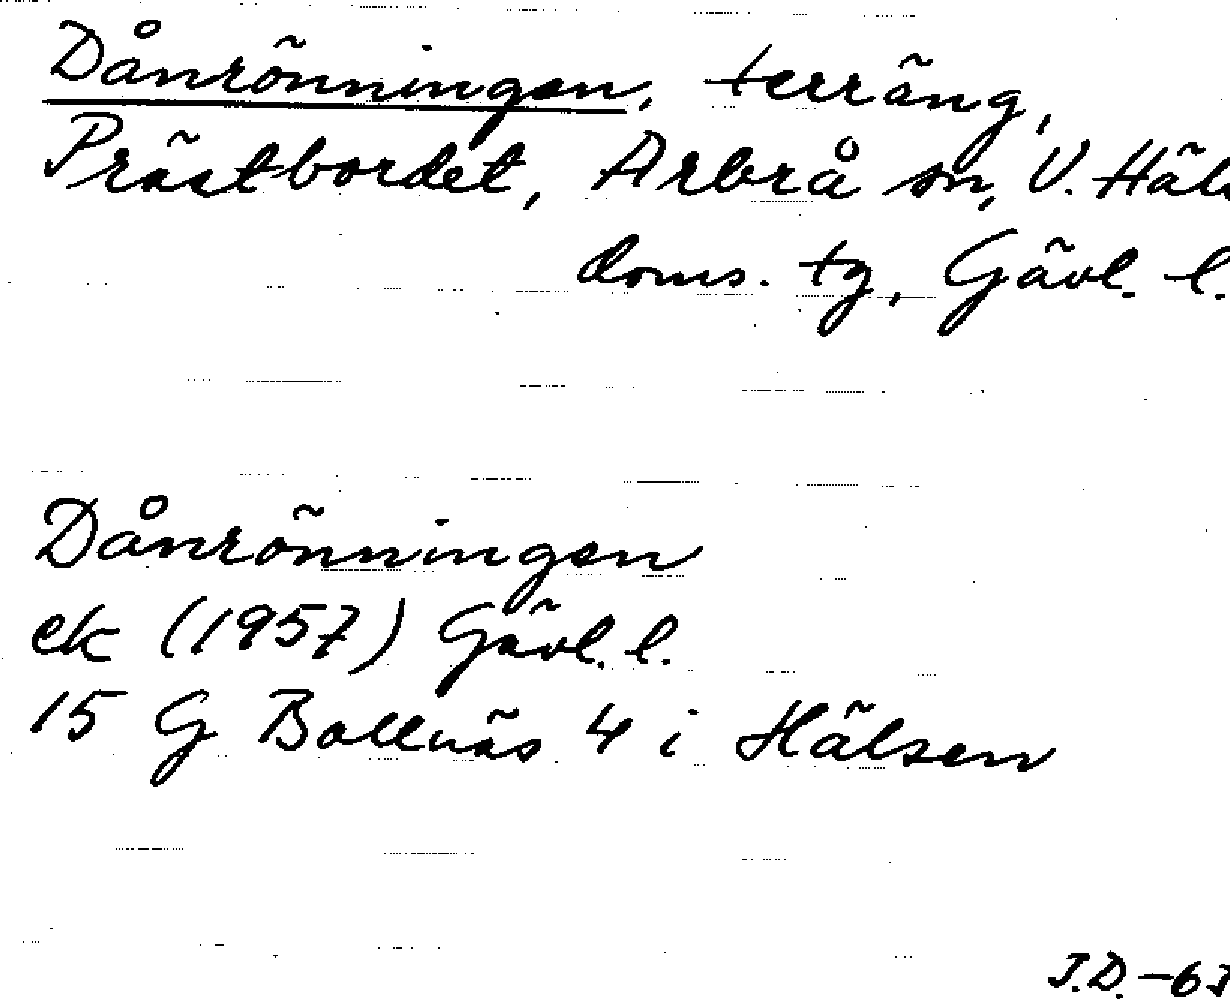 Dånrönningen, terräng,
Prästbordet, Arbrå sn, V. Häls
doms. tg, Gävl. l.
Dånrönningen
ek (1957) Gävl. l.
15 G Bollnäs 4 i Hälsen
J.D. -63